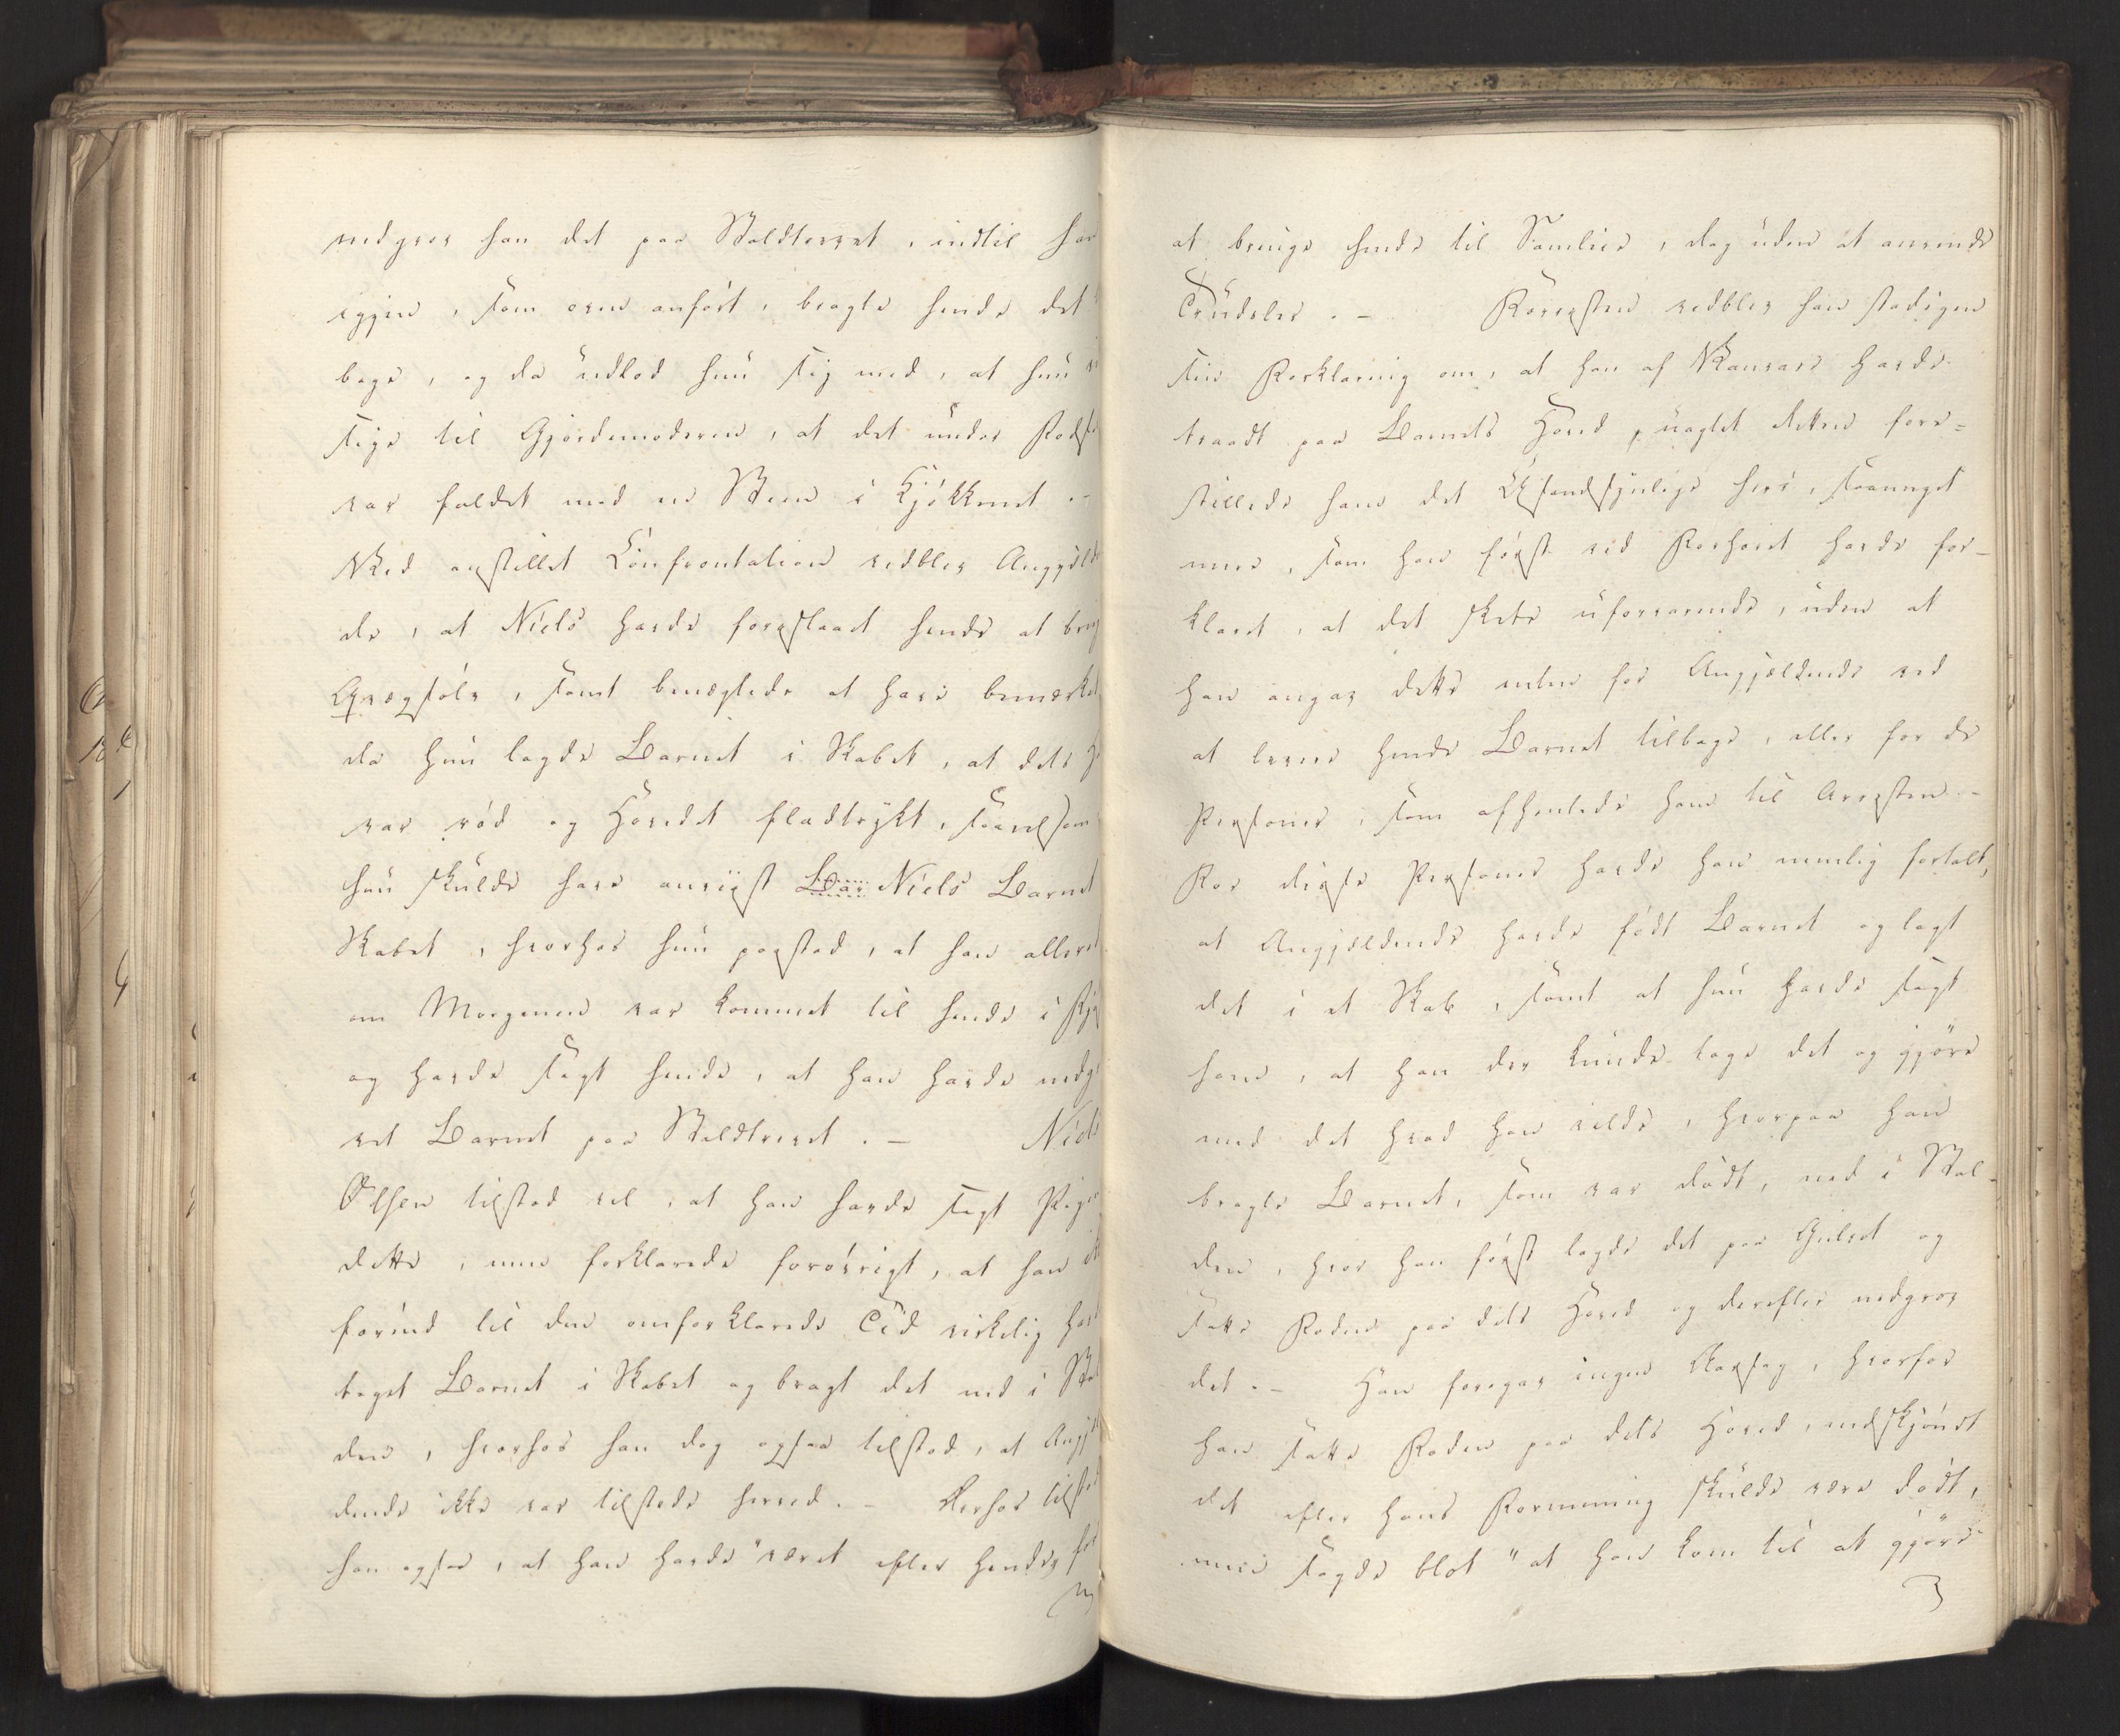 nedgrov han det paa Staldtrevet, indtil han
igjen, som oven anført, bragte hende det
bage, og da udlod hun sig med, at hun
sige til Gjordemoderen, at det under Fods
var faldet mod en Steen i Kjøkkenet. -
Ved anstillet Confrontation vedblev Angjæld
de, at Niels havde foreslaaet hende at brug
Qvægsølv, samt benægtede at have bemærket
da hun lagde Barnet i Skabet, at dets
var rød og Hovedet fladtrykt, saavelsom
hun skulde have anviist Bar Niels Barnet
Skabet, hvorhos hun paastod, at han allered
om Morgenen var kommet til hende i
og havde sagt hende, at han havde nedg
vet Barnet paa Staldtrevet. - Niels
Olsen tilstod vel, at han havde sagt Pigen
dette, men forklarede forøvrigt, at han ik
førend til den omforklarede Tid virkelig hav
taget Barnet i Skabet og bragt det ned i Stal
den, hvorhos han dog ogsaa tilstod, at Angjæl
dende ikke var tilstede herved. - Derhos tilsto
han ogsaa, at han havde "været efter hende, for
at bringe hende til Samleie, dog uden at anvende
Trudsler. - Forresten vedblev han stadigen
sin Forklaring om, at han af Vanvare havde
traadt paa Barnets Hoved, uagtet Retten fore=
stillede ham det Usandsynlige heri, saameget
mere, som han først ved Forhøret havde for-
klaret, at det skete uforvarende, uden at
han angav dette enten for Angjældende ved
at levere hende Barnet tilbage, eller for de
Personer, som afhentede ham til Arresten. -
For disse Personer havde han nemlig fortalt,
at Angjældende havde født Barnet og lagt
det i et Skab, samt at hun havde sagt
ham, at han der kunde tage det og gjøre
med det hvad han vilde, hvorpaa han
bragte Barnet, som var dødt, ned i Stal-
den, hvor han først lagde det paa Gulvet og
satte Foden paa dets Hoved og derefter nedgrov
det. - Han foregav ingen Aarsag, hvorfor
han satte Foden paa dets Hoved, endskjøndt
det efter hans Formening skulde være dødt,
men sagde blot "at han kom til at gjøre